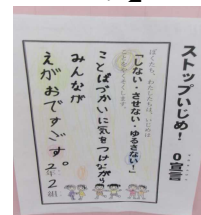 ストップいじめ！ 0宣言
ぼくたち、わたしたちは、いじめを
「しない・させない・ゆるさない！」
ことばづかいに気をつけながら
みんなが
えがおですごす。
2年2組